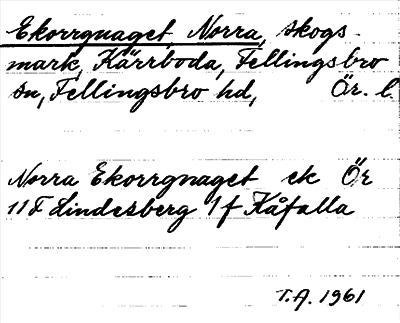 Ekorrgnaget, Norra, skogs-
mark, Kärrboda, Fellingsbro
sn, Fellingsbro hd, Ör. l.
Norra Ekorrgnaget ek Ör
11F Lindesberg 1f Kåfalla
T.A. 1961